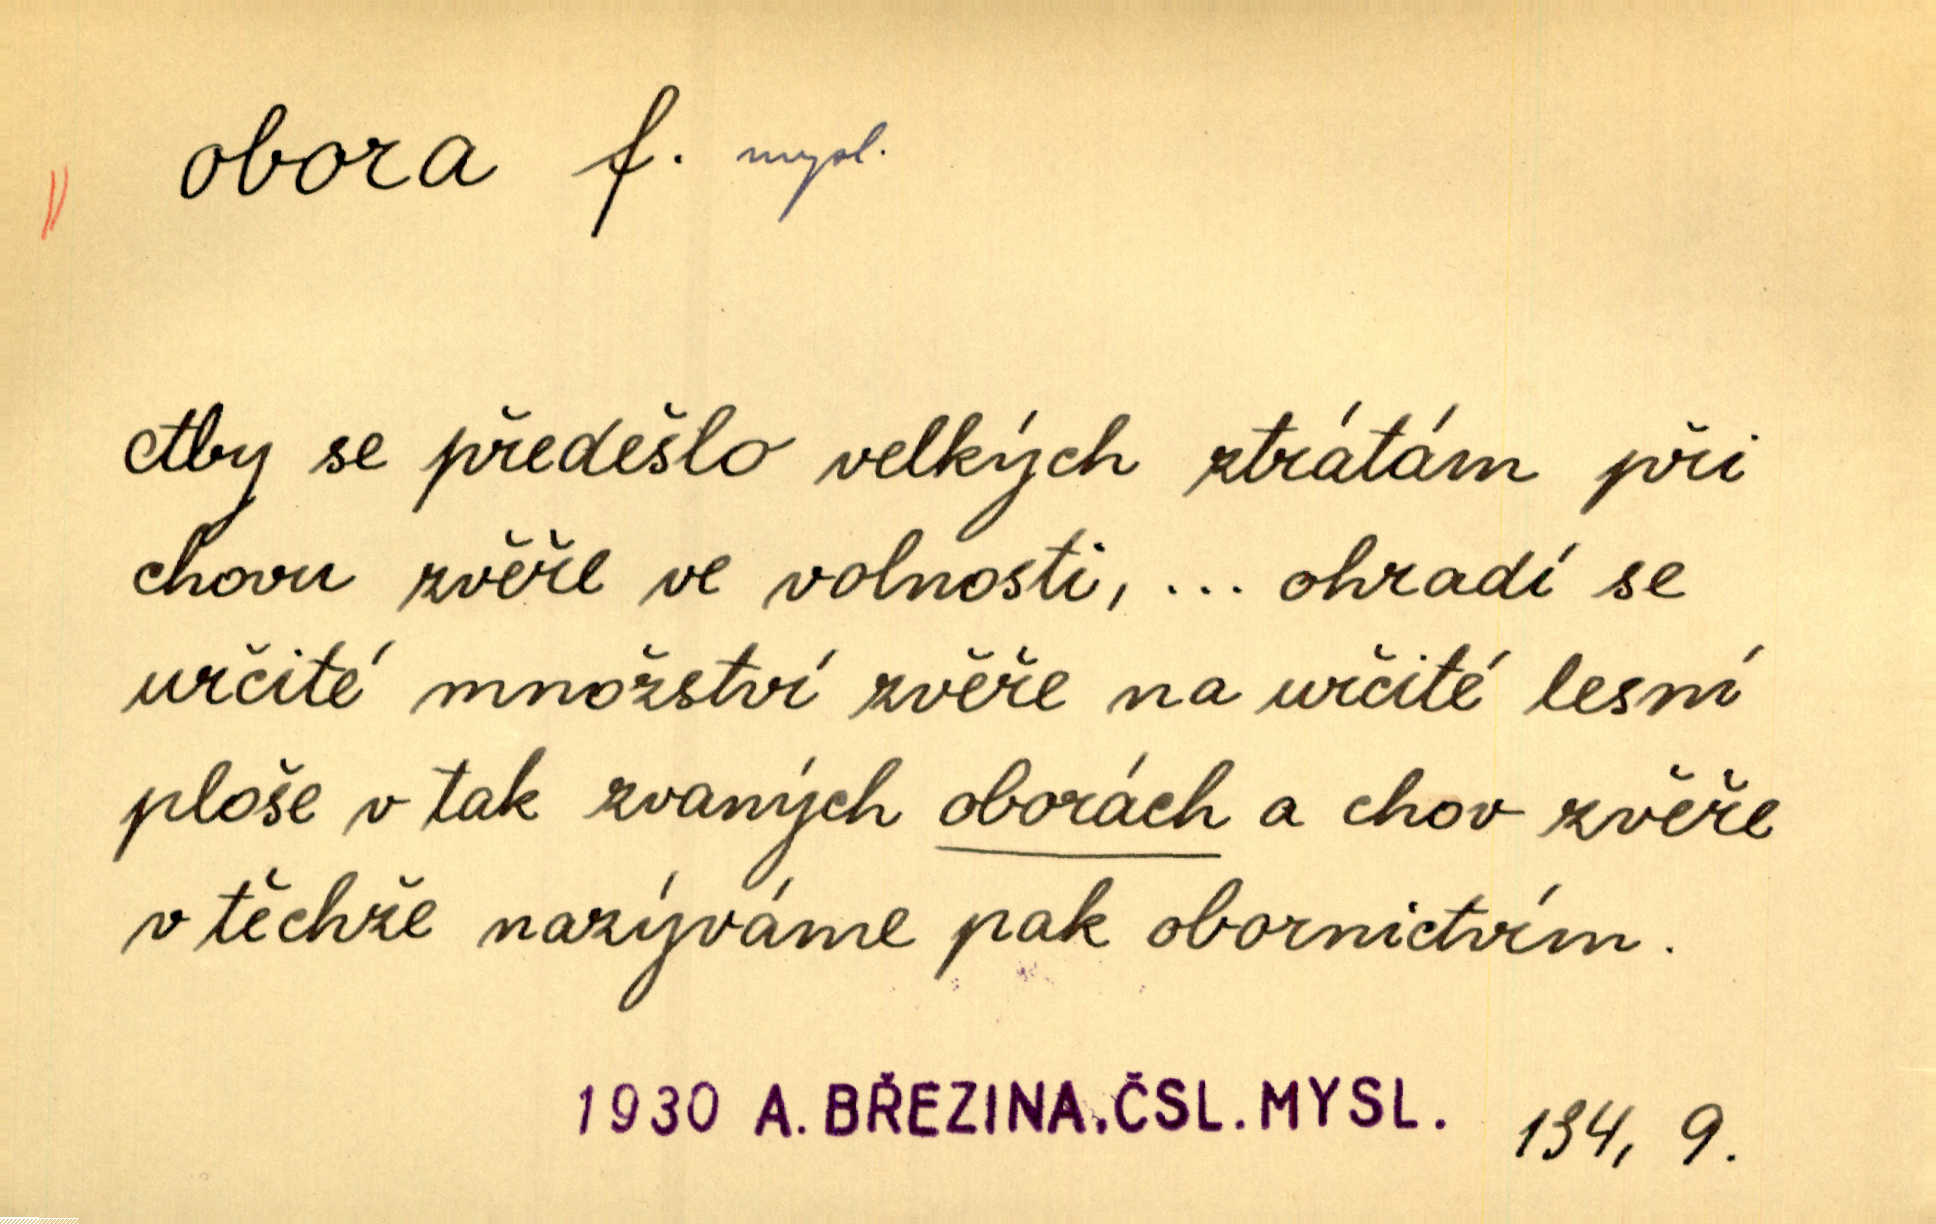 obora f. mysl.
Aby se předešlo velkých ztrátám při
chovu zvěře ve volnosti, ... ohradí se
určité množství zvěře na určité lesní
ploše v tak zvaných oborách a chov zvěře
v těchže nazýváme pak obornictvím.
1930 A. BŘEZINA. ČSL. MYSL. 134, 9.